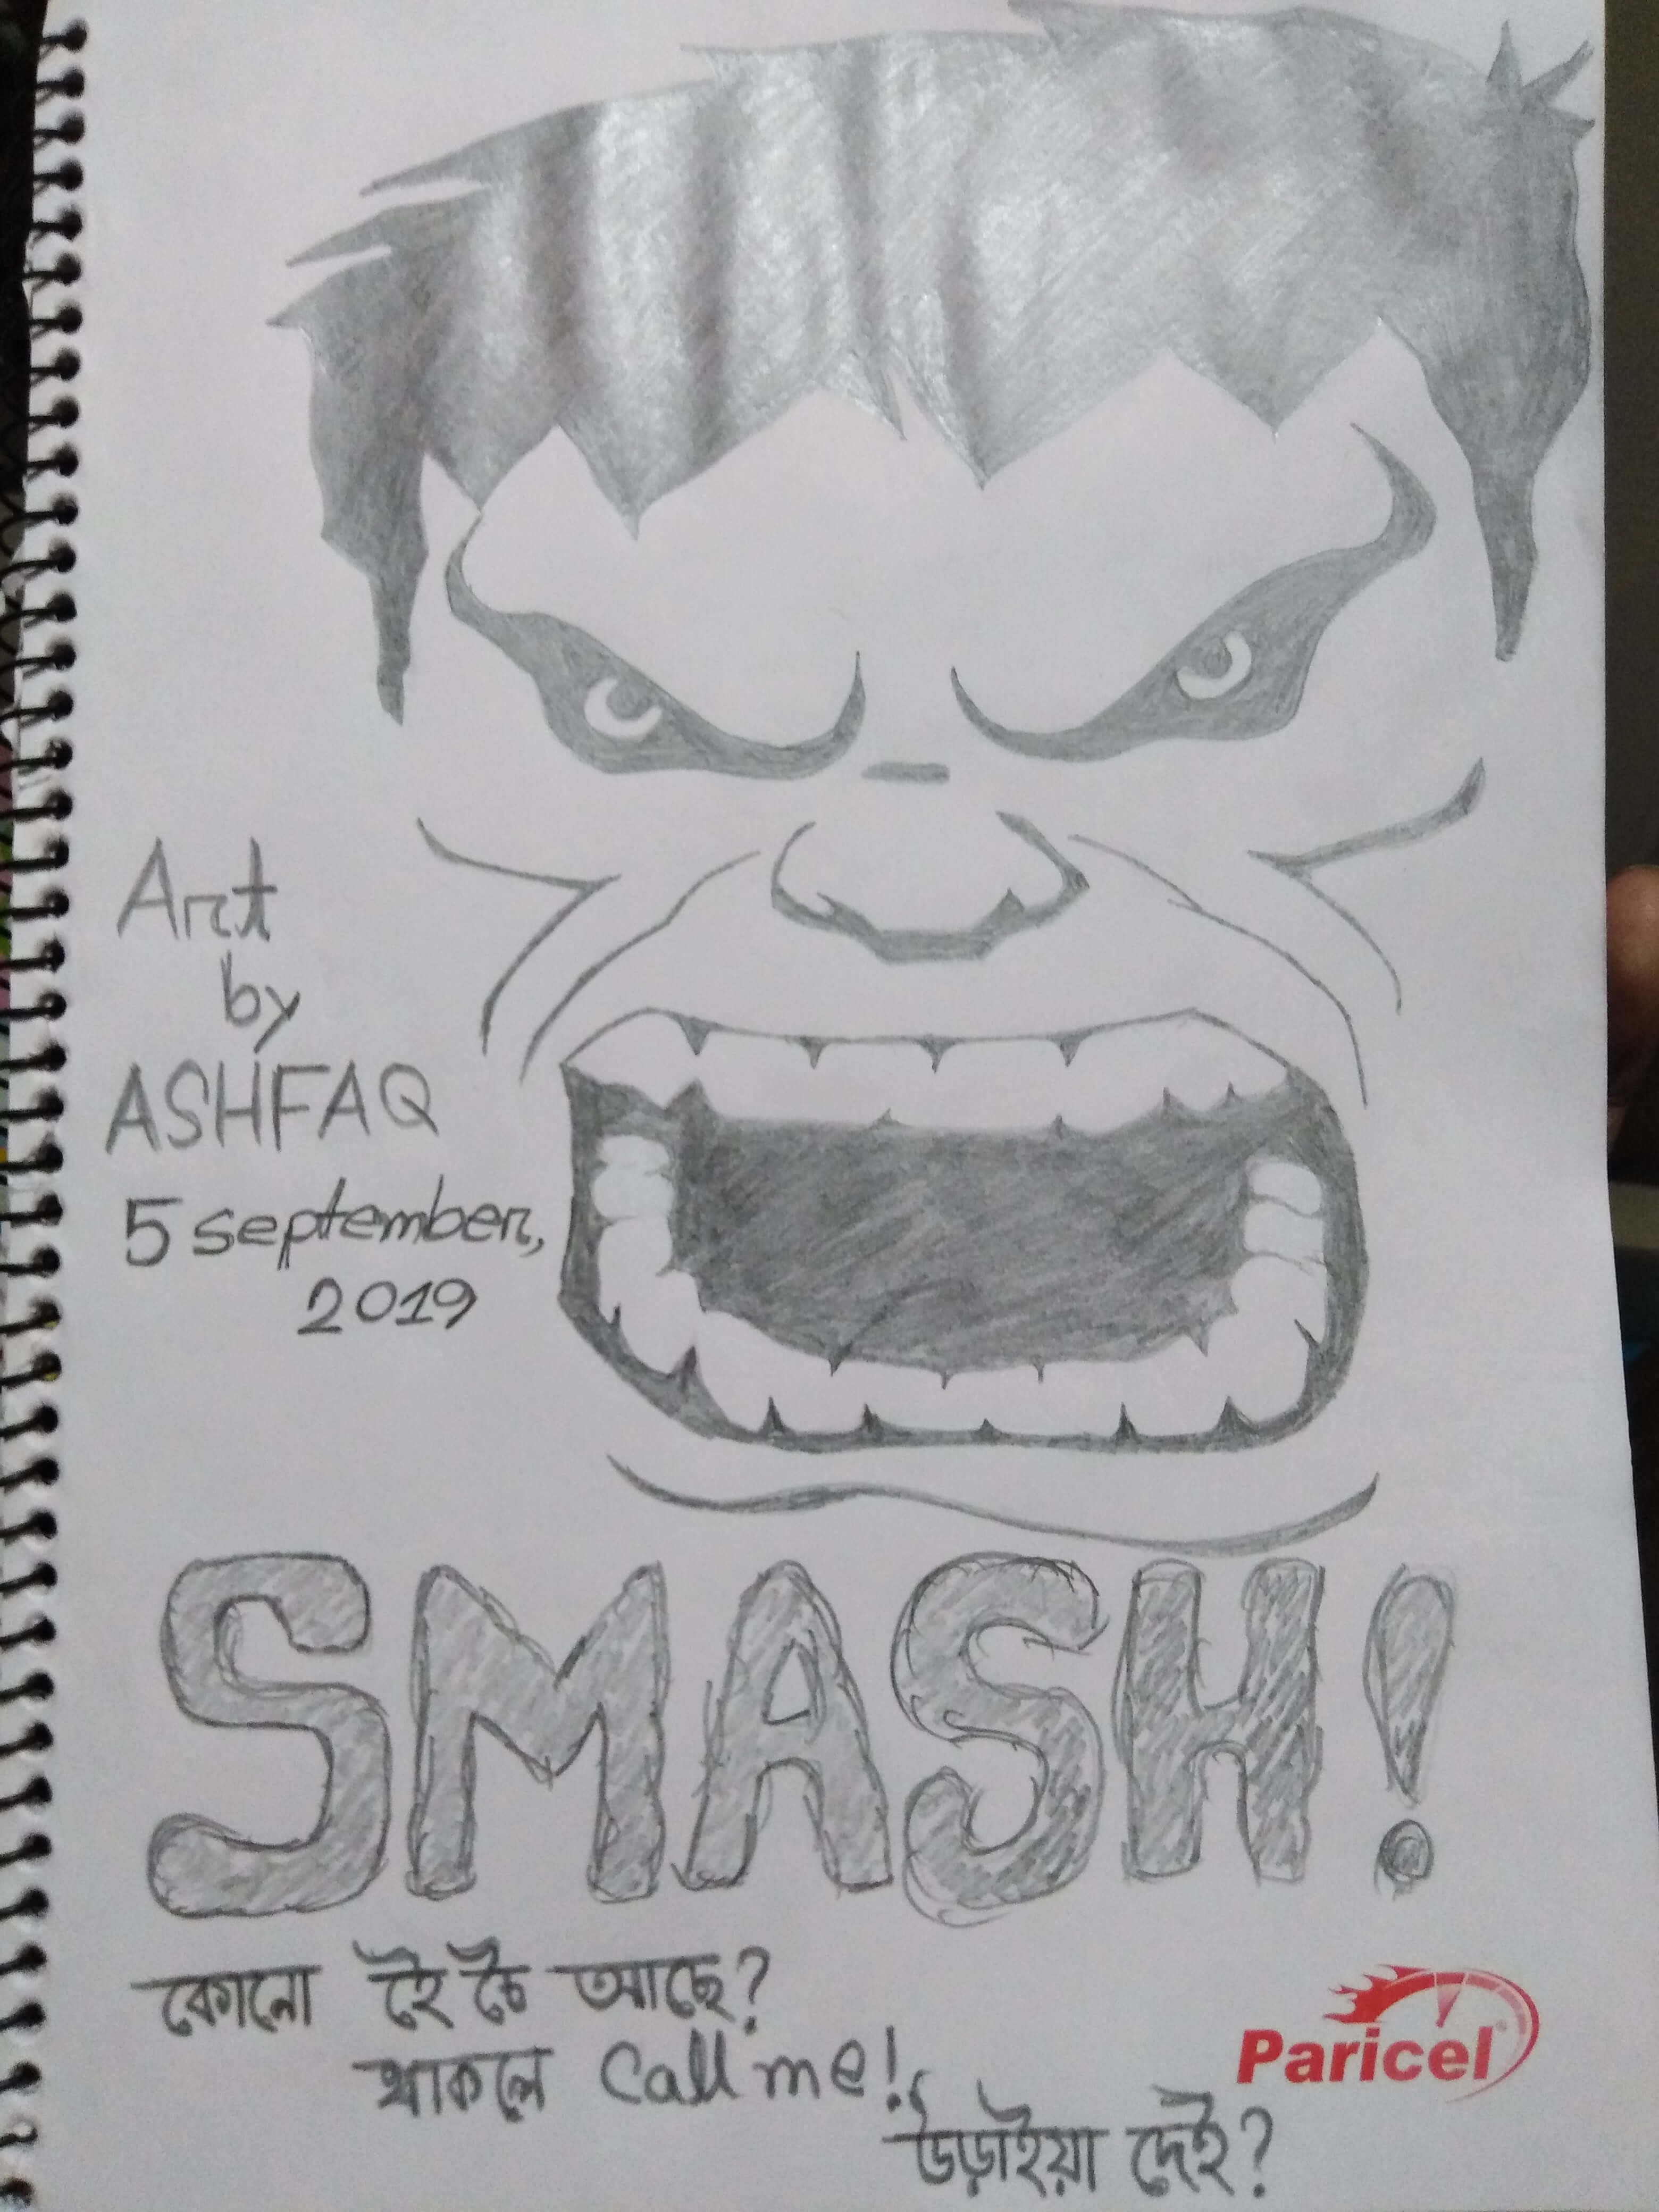 Art
by
ASHFAQ
5 september,
2019
SMASH!
কোনো হৈ চৈ আছে?
থাকলে Call me!
উড়াইয়া দেই?
Paricel